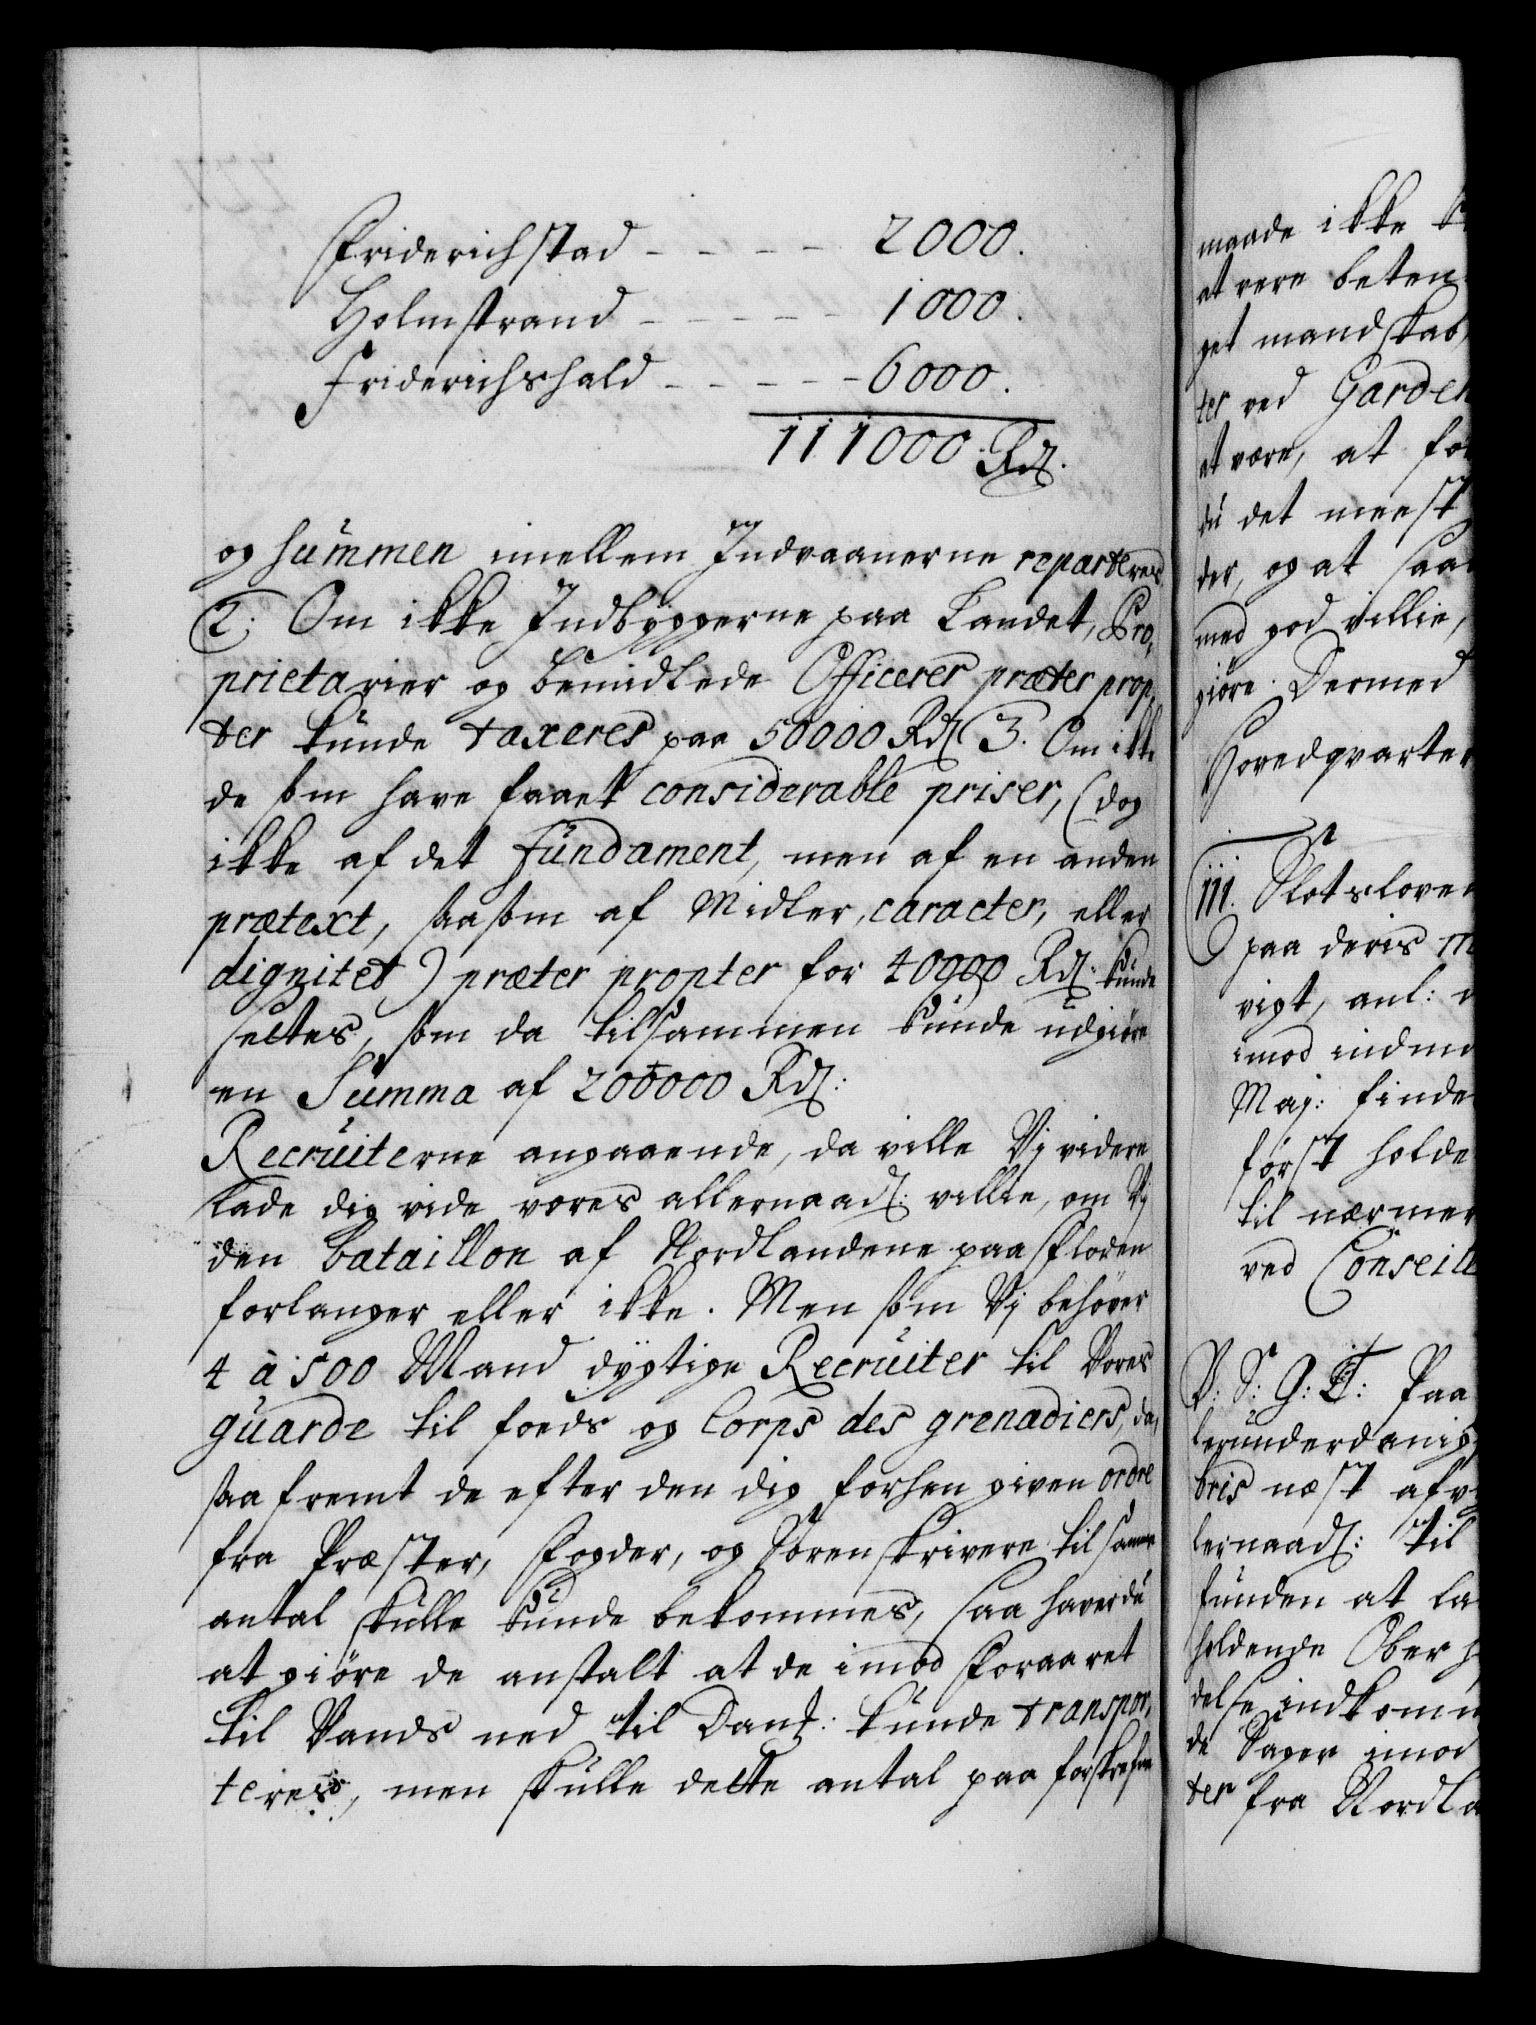 Friderichstad - - - - 2000.
Holmstrand - - - - - 1000.
Friderichshald - - - - - 6000.
111000 Rdr.
og Summen imellem Indvaanerne reparteres
2. Om ikke Indbyggerne paa Landet, Pro,
prietarier og bemidlede Officerer præter prop,
ter kunde taxeres paa 50000 Rdr 3. Om ikke
de som have faaet considerable priser, (dog
ikke af det Fundament, men af en anden
prætext, saasom af Midler, caracter, eller
dignitet) præter propter for 40000 Rdr: kunde
settes, som da tilsammen kunde udgiøre
en Summa af 200000 Rdr:
Recruiterne angaaende, da ville Vj videre
lade dig vide vores allernaads: villie, om Vj
den bataillon af Nordlandene paa Floden
forlanger eller ikke. Men som Vj behøver
4 à 500 Mand dygtige Recruiter til Vores
guarde til foeds og Corps des grenadiers, da,
saafremt de efter den dig forhen given ordre
fra Præster, Fogder, og Sorenskrivere til samme
antal skulle kunde bekommes, saa haver du
at giøre de anstalt at de imod Foraaret
til Vands ned til Danf: kunde transpor,
teres, men skulle dette antal paa forskrefne
maade ikke
at vere beten
get mandskab,
ter ved Garden
at være, at for
du det meest
der, og at saa
med god villie,
giøre. Dermed
Hovedqvarter
111. Slotsloven
paa deris
vigt, anl:
imod indme
Maj: finde
først holde
til nærmer
ved Conseill
P: S: G: T: Paa
lerunderdanig
bris næst afv
lernaads: til
funden at la
holdende Ober
delse indkomm
de Sager imod
ter fra Nordla